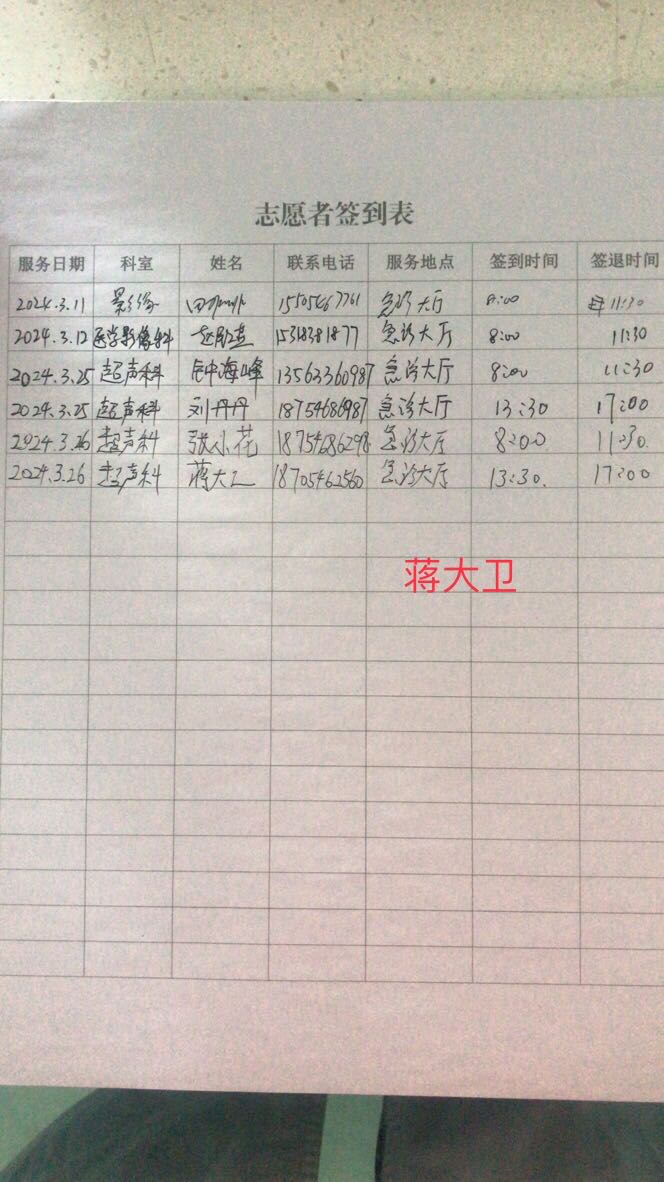 志愿者签到表
服务日期 科室 姓名 联系电话 服务地点 签到时间 签退时间
2024.3.11 影像 15505467761 急诊大厅 8:00 11:30
2024.3.12 医学影像科 15318381877 急诊大厅 8:00 11:30
2024.3.25 超声科 海峰 13563360987 急诊大厅 8:00 11:30
2024.3.25 超声科 刘丹丹 18754686987 急诊大厅 13:30 17:00
2024.3.26 超声科 张小花 18754686298 急诊大厅 8:00 11:30.
2024.3.26 超声科 蒋大卫 18705462560 急诊大厅 13:30. 17:00
蒋大卫